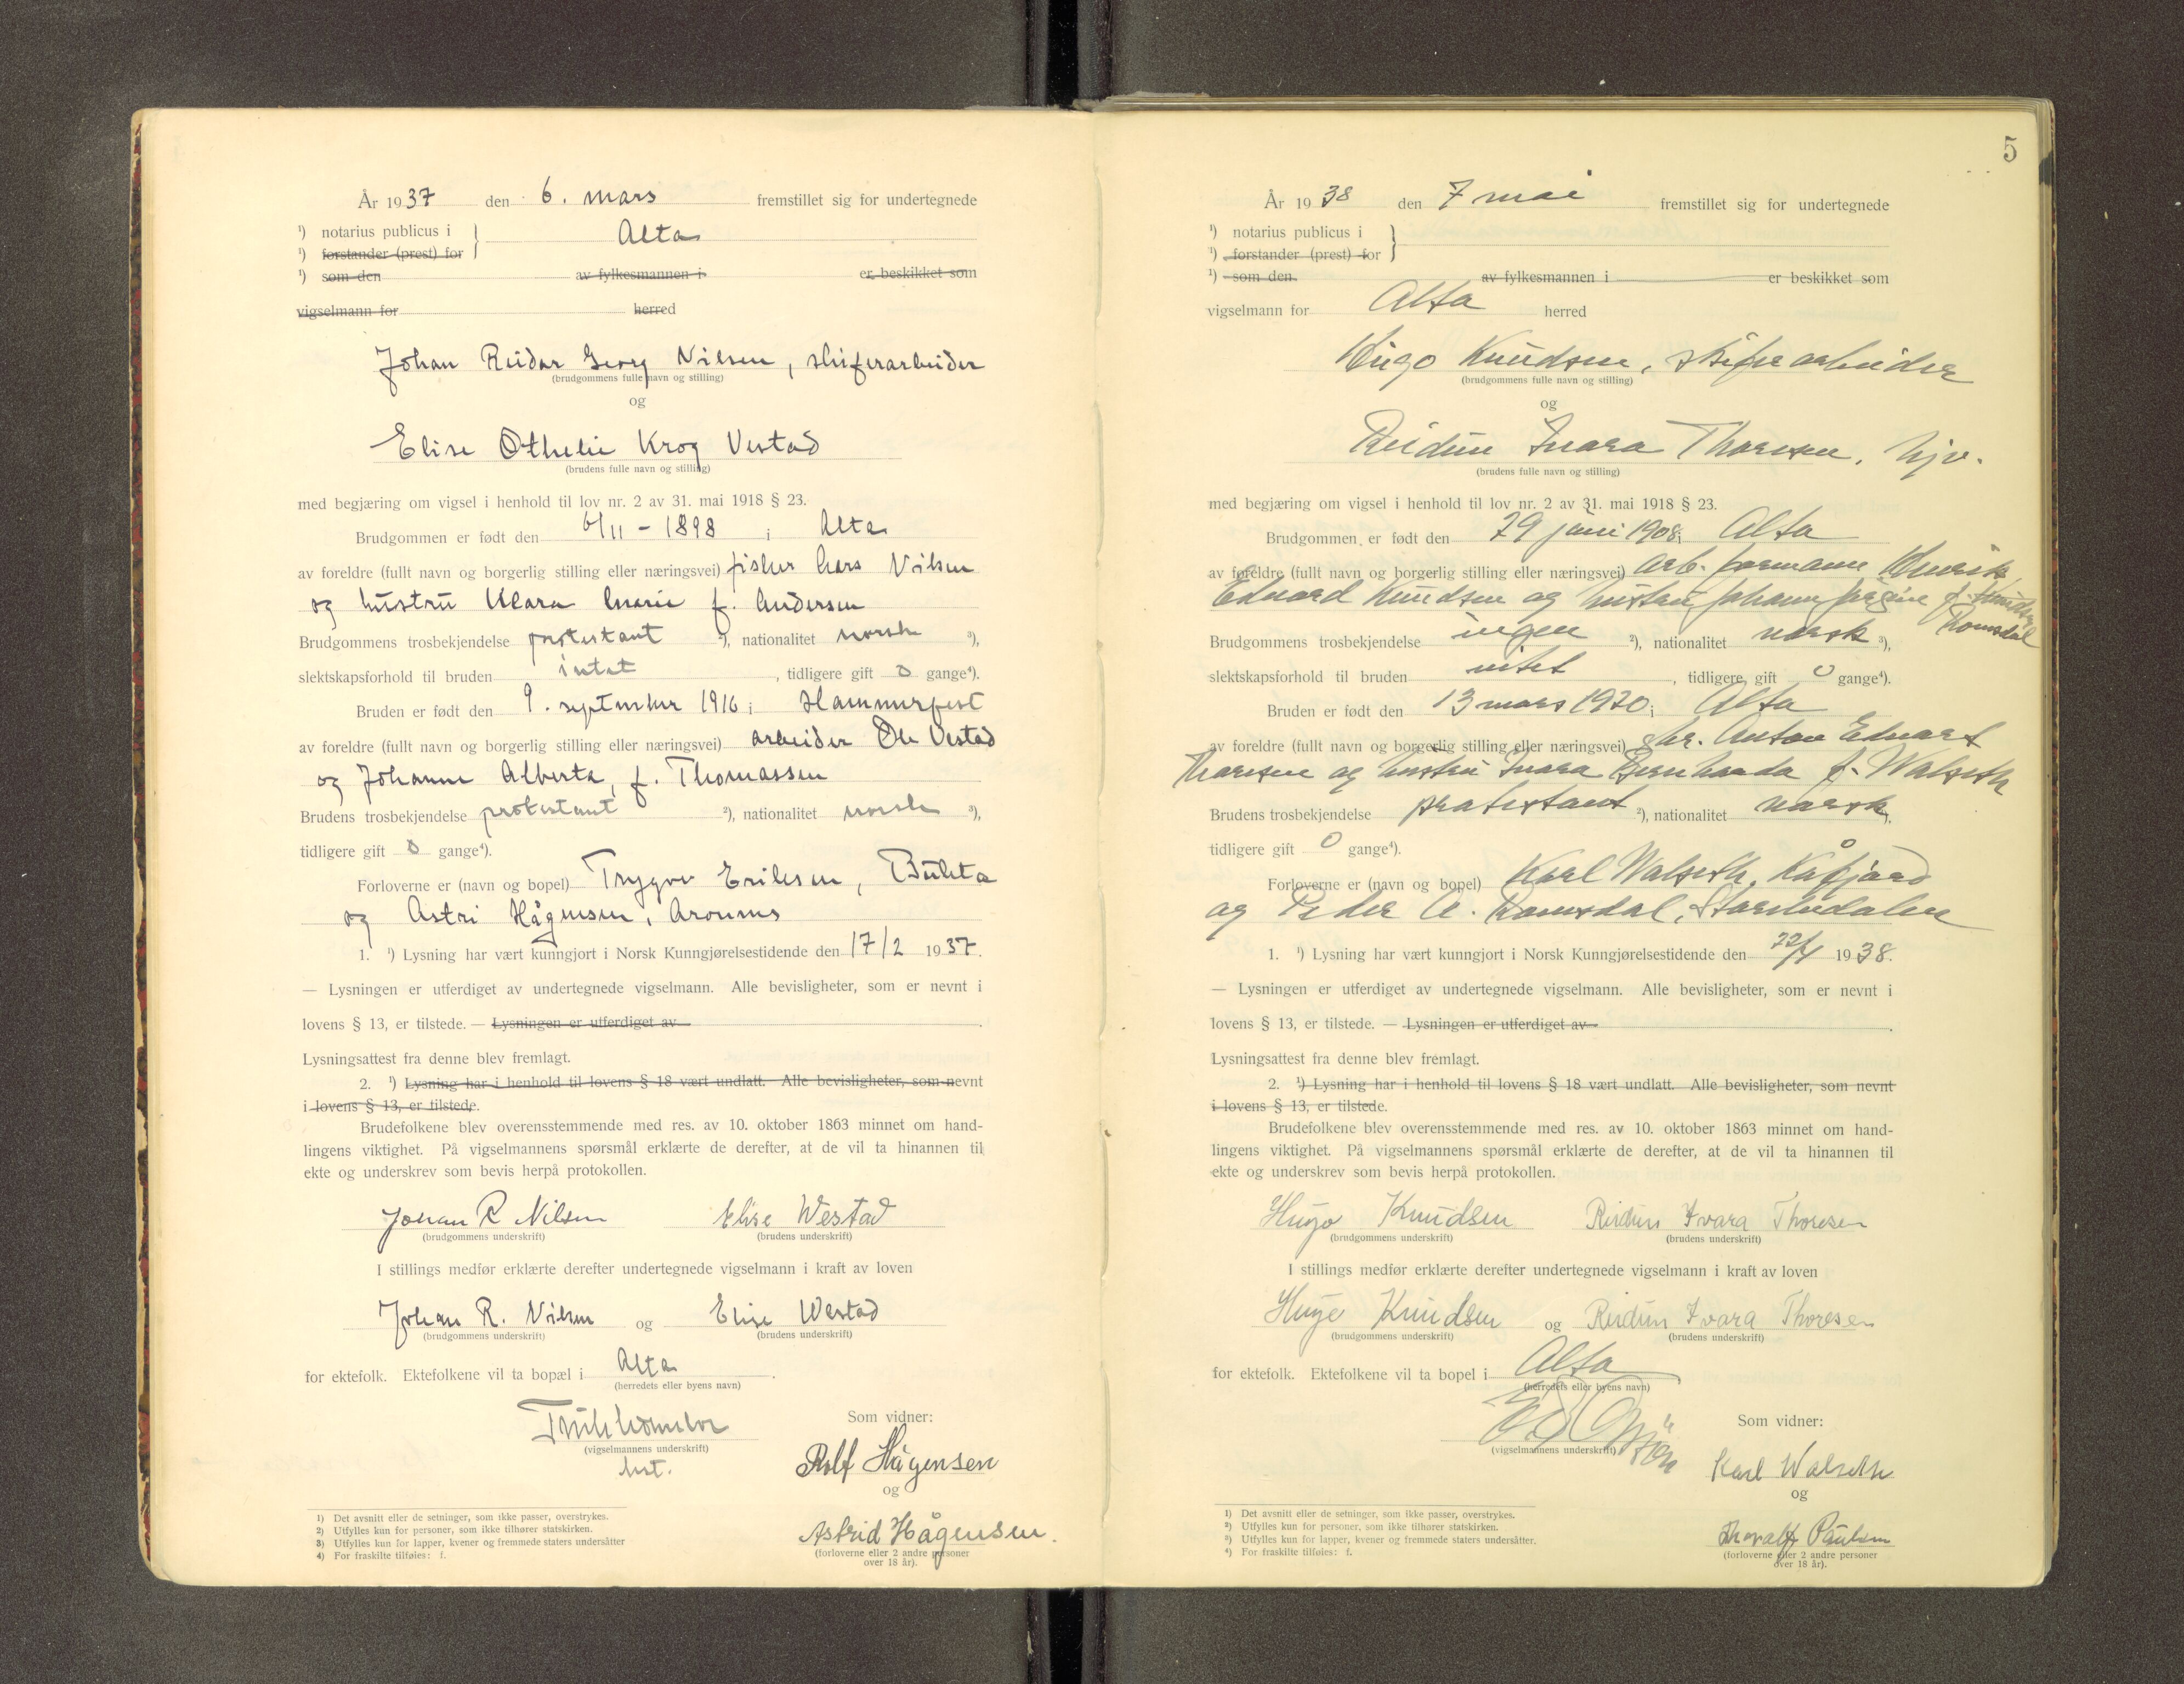 År 1937 den 6. mars fremstillet sig for undertegnede
¹) notarius publicus i } Alta
¹) forstander (prest) for
¹) som den av fylkesmannen i er beskikket som
vigselmann for herred
Johan Reidar Georg Nilsen, skiferarbeider
(brudgommens fulle navn og stilling)
og
Elise Othelie Krog Vestad
(brudens fulle navn og stilling)
med begjæring om vigsel i henhold til lov nr. 2 av 31. mai 1918 § 23.
Brudgommen er født den 6/11 - 1898 i Alta
av foreldre (fullt navn og borgerlig stilling eller næringsvei) fisker Lars Nilsen
og hustru Klara Marie f. Andersen
Brudgommens trosbekjendelse protestant ²), nationalitet norsk ³),
slektskapsforhold til bruden intet, tidligere gift 0 gange⁴).
Bruden er født den 9. september 1916 i Hammerfest
av foreldre (fullt navn og borgerlig stilling eller næringsvei) arbeider Ole Vestad
og Johanne Alberta, f. Thomassen
Brudens trosbekjendelse protestant ²), nationalitet norsk ³),
tidligere gift 0 gange⁴).
Forloverne er (navn og bopel) Trygve Eriksen, Bukta
og Astri Hågensen, Aronnes
1. ¹) Lysning har vært kunngjort i Norsk Kunngjørelsestidende den 17/2 1937.
— Lysningen er utferdiget av undertegnede vigselmann. Alle bevisligheter, som er nevnt i
lovens § 13, er tilstede. — Lysningen er utferdiget av .
Lysningsattest fra denne blev fremlagt.
2. ¹) Lysning har i henhold til lovens § 18 vært undlatt. Alle bevisligheter, som nevnt
i lovens § 13, er tilstede.
Brudefolkene blev overensstemmende med res. av 10. oktober 1863 minnet om hand-
lingens viktighet. På vigselmannens spørsmål erklærte de derefter, at de vil ta hinannen til
ekte og underskrev som bevis herpå protokollen.
Johan R Nilsen Elise Westad
(brudgommens underskrift) (brudens underskrift)
I stillings medfør erklærte derefter undertegnede vigselmann i kraft av loven
Johan R. Nilsen og Elise Westad
(brudgommens underskrift) (brudens underskrift)
for ektefolk. Ektefolkene vil ta bopæl i Alta .
(herredets eller byens navn)
Som vidner:
(vigselmannens underskrift)
Rolf Hågensen
og
Astrid Hågensen.
(forloverne eller 2 andre personer
over 18 år).
1) Det avsnitt eller de setninger, som ikke passer, overstrykes.
2) Utfylles kun for personer, som ikke tilhører statskirken.
3) Utfylles kun for lapper, kvener og fremmede staters undersåtter
4) For fraskilte tilføies: f.
5
År 1938 den 7 mai fremstillet sig for undertegnede
¹) notarius publicus i }
¹) forstander (prest) for
¹) som den av fylkesmannen i er beskikket som
vigselmann for Alta herred
Hugo Knudsen, skiferarbeider
(brudgommens fulle navn og stilling)
og
Reidun Ivara Thoresen, hjv.
(brudens fulle navn og stilling)
med begjæring om vigsel i henhold til lov nr. 2 av 31. mai 1918 § 23.
Brudgommen er født den 29 juni 1908 i Alta
av foreldre (fullt navn og borgerlig stilling eller næringsvei) arb. formann Henrik
Edvard Knudsen og hustru Johanna f.
Romsdal
Brudgommens trosbekjendelse ingen ²), nationalitet norsk ³),
slektskapsforhold til bruden intet, tidligere gift 0 gange⁴).
Bruden er født den 13 mars 1920 i Alta
av foreldre (fullt navn og borgerlig stilling eller næringsvei) gbr. Anton Edvart
Thoresen og hustru Ivara Bernharda f. Walseth
Brudens trosbekjendelse protestant ²), nationalitet norsk ³),
tidligere gift 0 gange⁴).
Forloverne er (navn og bopel) Karl Walseth, Kåfjord
og Peder A. Romsdal, Storelvdalen
1. ¹) Lysning har vært kunngjort i Norsk Kunngjørelsestidende den 22/4 1938.
— Lysningen er utferdiget av undertegnede vigselmann. Alle bevisligheter, som er nevnt i
lovens § 13, er tilstede. — Lysningen er utferdiget av .
Lysningsattest fra denne blev fremlagt.
2. ¹) Lysning har i henhold til lovens § 18 vært undlatt. Alle bevisligheter, som nevnt
i lovens § 13, er tilstede.
Brudefolkene blev overensstemmende med res. av 10. oktober 1863 minnet om hand-
lingens viktighet. På vigselmannens spørsmål erklærte de derefter, at de vil ta hinannen til
ekte og underskrev som bevis herpå protokollen.
Hugo Knudsen Reidun Ivara Thoresen
(brudgommens underskrift) (brudens underskrift)
I stillings medfør erklærte derefter undertegnede vigselmann i kraft av loven
Hugo Knudsen og Reidun Ivara Thoresen
(brudgommens underskrift) (brudens underskrift)
for ektefolk. Ektefolkene vil ta bopel i Alta .
(herredets eller byens navn)
Som vidner:
(vigselmannens underskrift)
Karl Walseth
og
Thoralf Paulsen
(forloverne eller 2 andre personer
over 18 år).
1) Det avsnitt eller de setninger, som ikke passer, overstrykes.
²) Utfylles kun for personer, som ikke tilhører statskirken.
³) Utfylles kun for lapper, kvener og fremmede staters undersåtter.
⁴) For fraskilte tilføies: f.